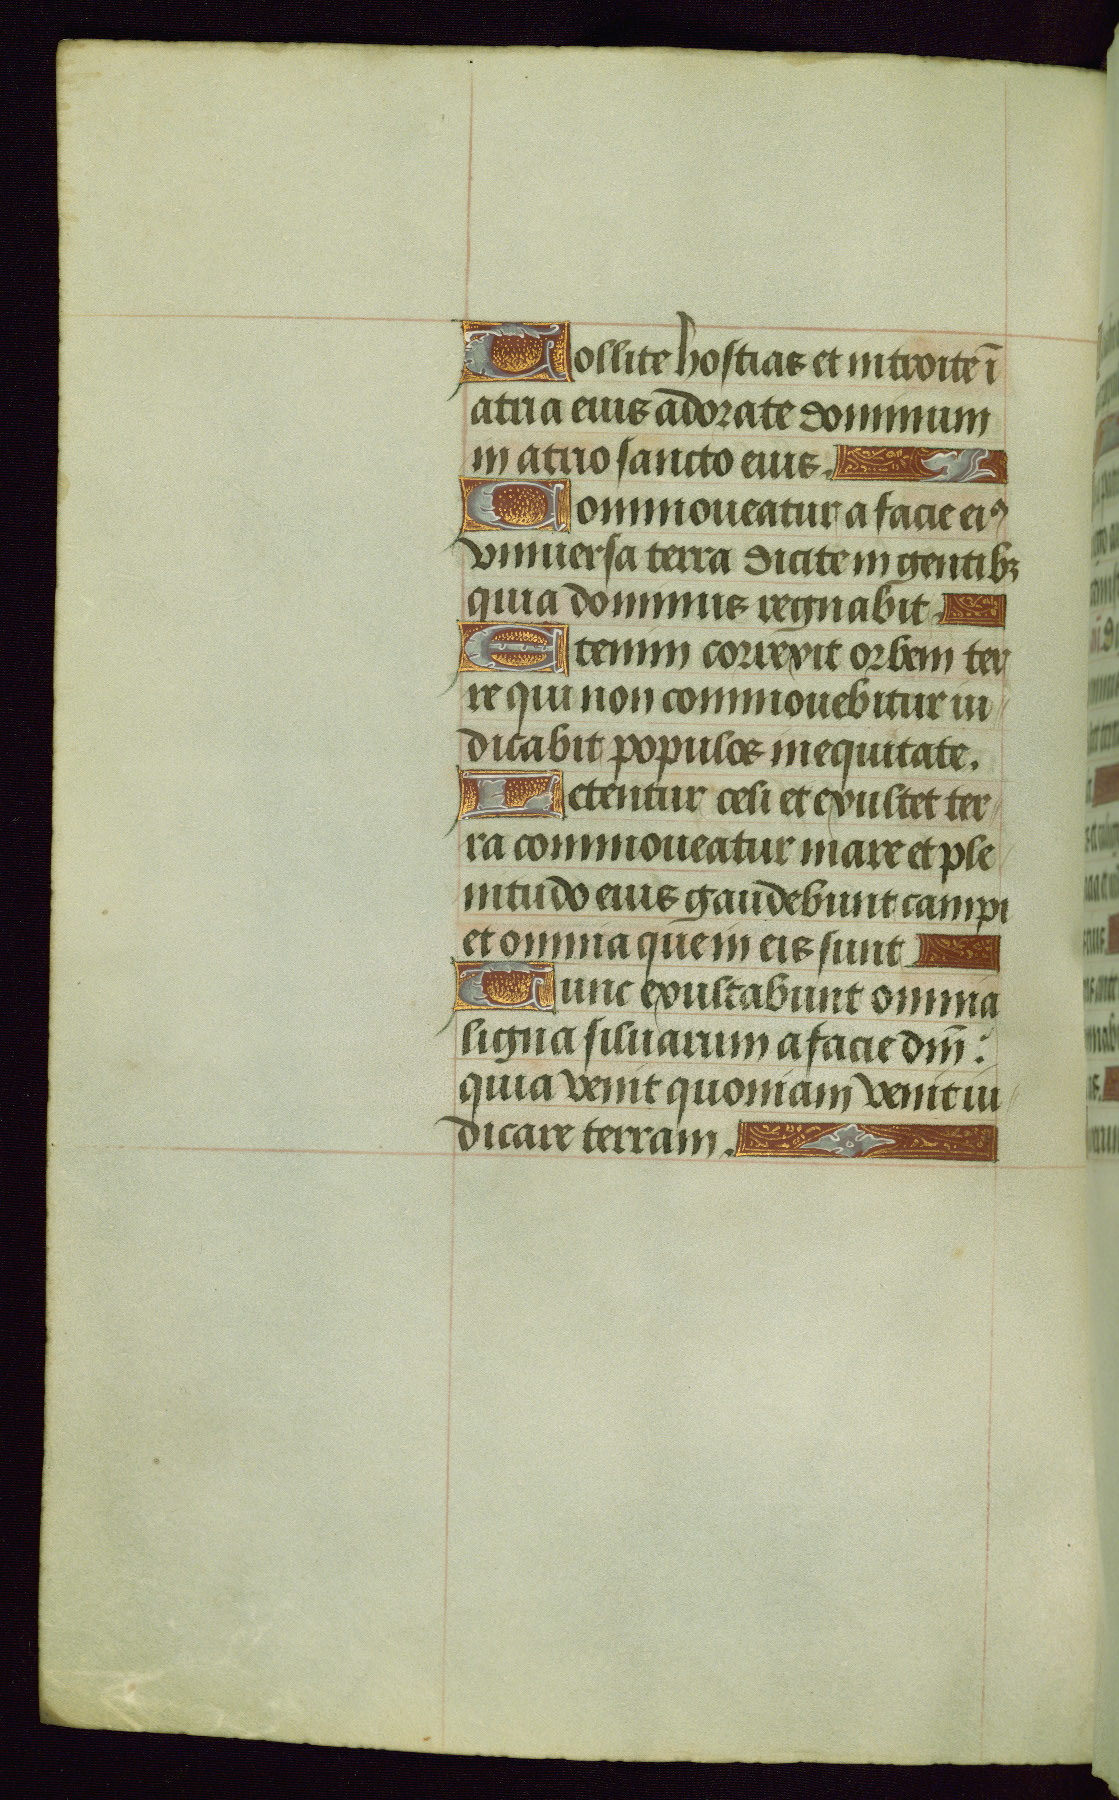 Tollite hostias et introite ī
atria eius adorate dominum
in atrio sancto eius.
Commoueatur a facie eiꝰ
vniuersa terra dicite in gentibꝫ
quia dominus regnabit
Etenim correxit orbem ter
re qui non commouebitur iu
dicabit populos in equitate.
Letentur celi et exultet ter
ra commoueatur mare et ple
nitudo eius gaudebunt campi
et omnia que in eis sunt
Tunc exultabunt omnia
ligna siluarum a facie dñi :
quia venit quoniam venit iu
dicare terram.